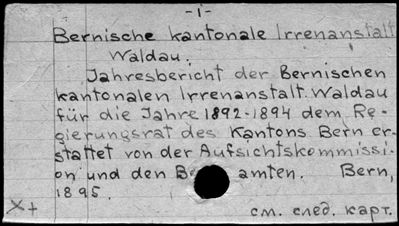 -1-
Bernische kantonale Irrenanstalt
Waldau.
Jahresbericht der Bernischen
kantonalen Irrenanstalt Waldau
für die Jahre 1892-1894 dem Re-
gierungsrat des Kantons Bern er-
stattet von der Aufsichtskommissi-
on und den B amten. Bern,
1895.
X+
см. след. карт.